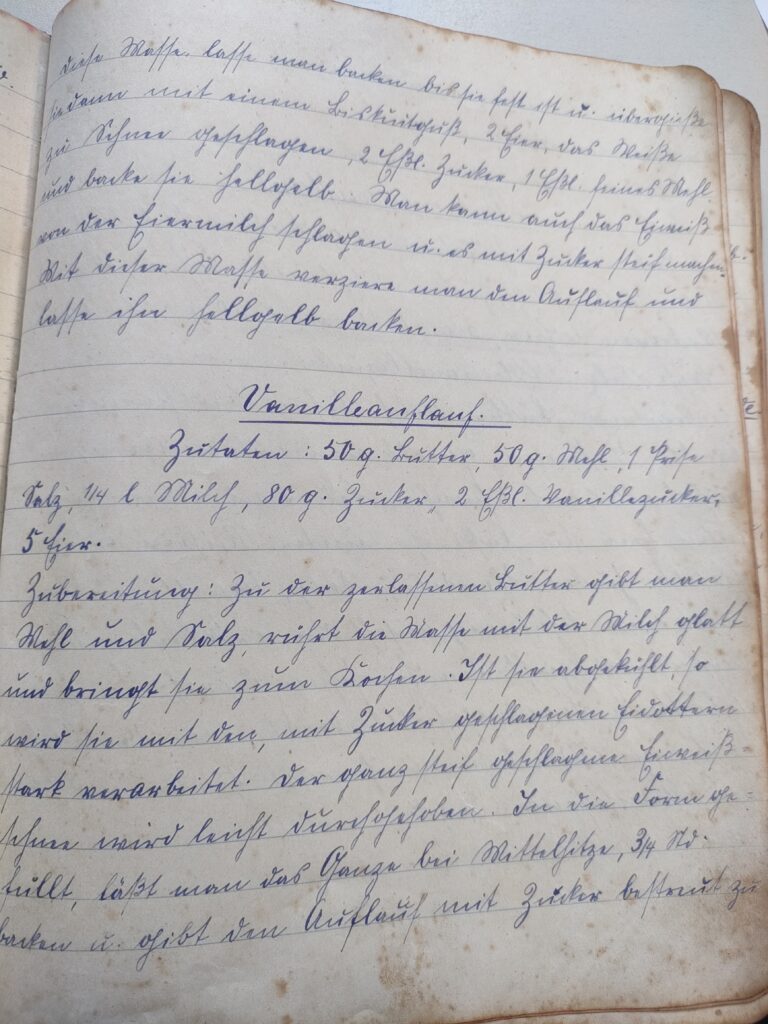 diese Masse lasse man backen bis sie fest ist u. übergieße
sie dann mit einem Biskuitguß, 2 Eier, das Weiße
zu Schnee geschlagen, 2 Eßl. Zucker, 1 Eßl. feines Mehl
und backe sie hellgelb. Man kann auch das Eiweiß
von der Eiermilch schlagen u. es mit Zucker steif machen.
Mit dieser Masse verziere man den Auflauf und
lasse ihn hellgelb backen.
Vanilleauflauf.
Zutaten : 50 g. Butter, 50 g. Mehl, 1 Prise
Salz, 1/4 l Milch, 80 g. Zucker, 2 Eßl. Vanillezucker,
5 Eier.
Zubereitung : Zu der zerlassenen Butter gibt man
Mehl und Salz, rührt die Masse mit der Milch glatt
und bringt sie zum Kochen. Ist sie abgekühlt, so
wird sie mit den, mit Zucker geschlagenen Eidottern
stark verarbeitet. Der ganz steif geschlagene Eiweiß-
schnee wird leicht durchgehoben. In die Form ge-
füllt, läßt man das Ganze bei Mittelhitze, 3/4 Std.
backen u. gibt den Auflauf mit Zucker bestreut zu